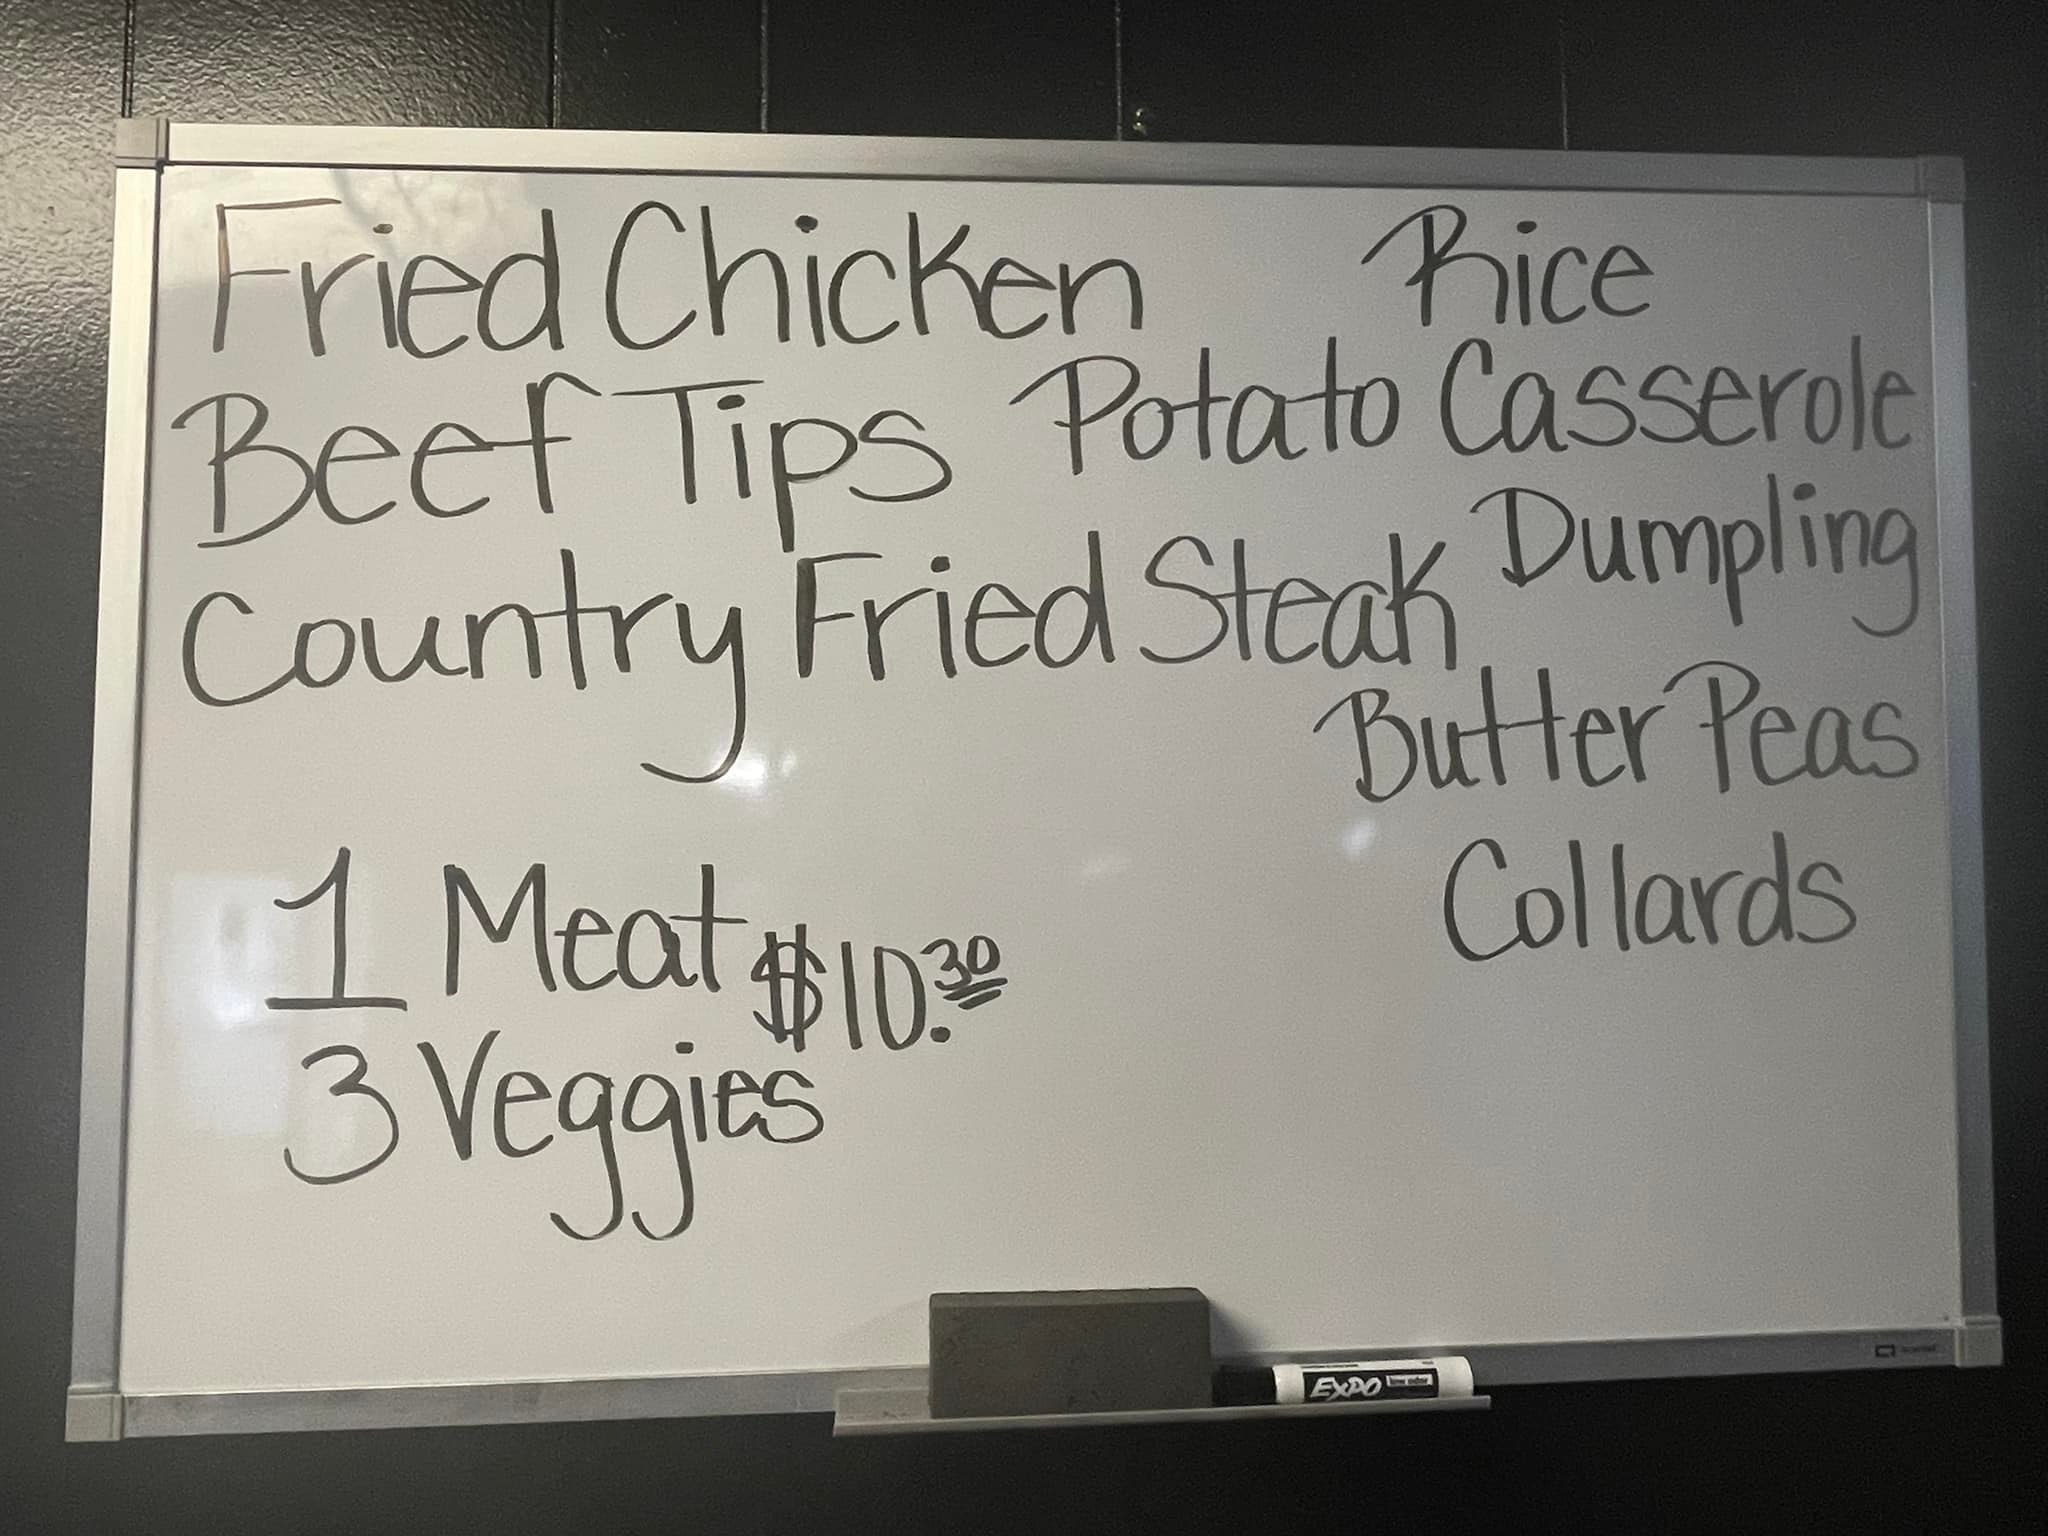 Fried Chicken
Beef Tips
Country Fried Steak
Rice
Potato Casserole
Dumpling
Butter Peas
Collards
1 Meat
$10.30
3 Veggies
EXPO low odor